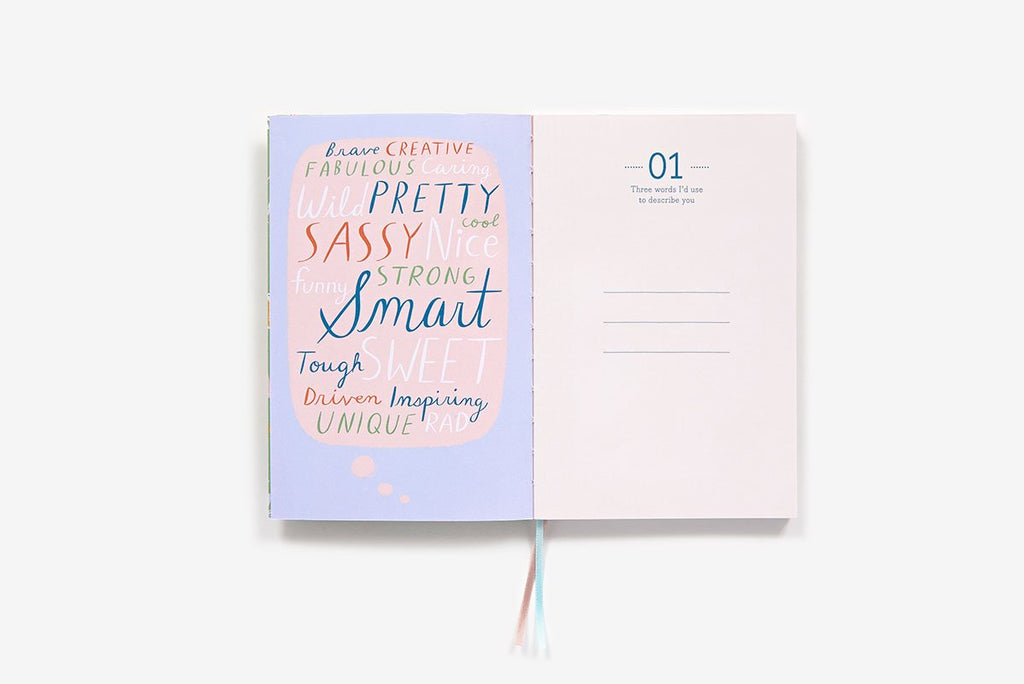 Brave CREATIVE
FABULOUS Caring
Wild PRETTY
cool
SASSY Nice
funny STRONG
Smart
Tough SWEET
Driven Inspiring
UNIQUE RAD
01
Three words I'd use
to describe you